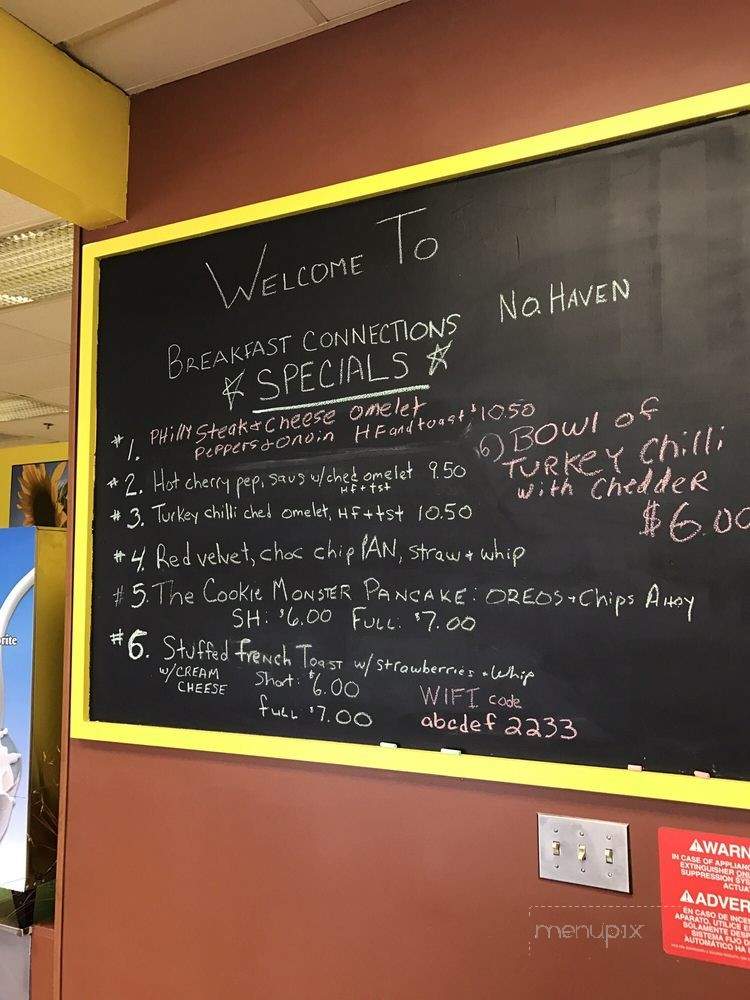 WELCOME TO
No. HAVEN
BREAKFAST CONNECTIONS
SPECIALS
#1. PHilly Steak & Cheese omelet $10.50
Peppers & Onoin HF and toast
#2. Hot cherry pep, saus w/ched omelet 9.50
HF + tst
#3. Turkey chilli ched omelet, HF + tst 10.50
#4. Red velvet, choc chip PAN, straw + whip
#5. The Cookie Monster Pancake: OREOS + Chips AHoy
SH: $6.00 FULL: $7.00
#6. Stuffed french Toast w/strawberries + Whip
w/CREAM
CHEESE
Short: $6.00
full $7.00
6) BOWl of
TURKEY Chilli
with CheddeR
$6.00
WIFI code
abcdef 2233
rite
WARN
IN CASE OF APPLIANC
EXTINGUISHER ON
SUPPRESSION SYS
ACTUA
ADVER
EN CASO DE INCE
APARATO, UTILICE E
DESPUÉS
SISTEMA FIJO D
AUTOMÁTICO HA
menupix